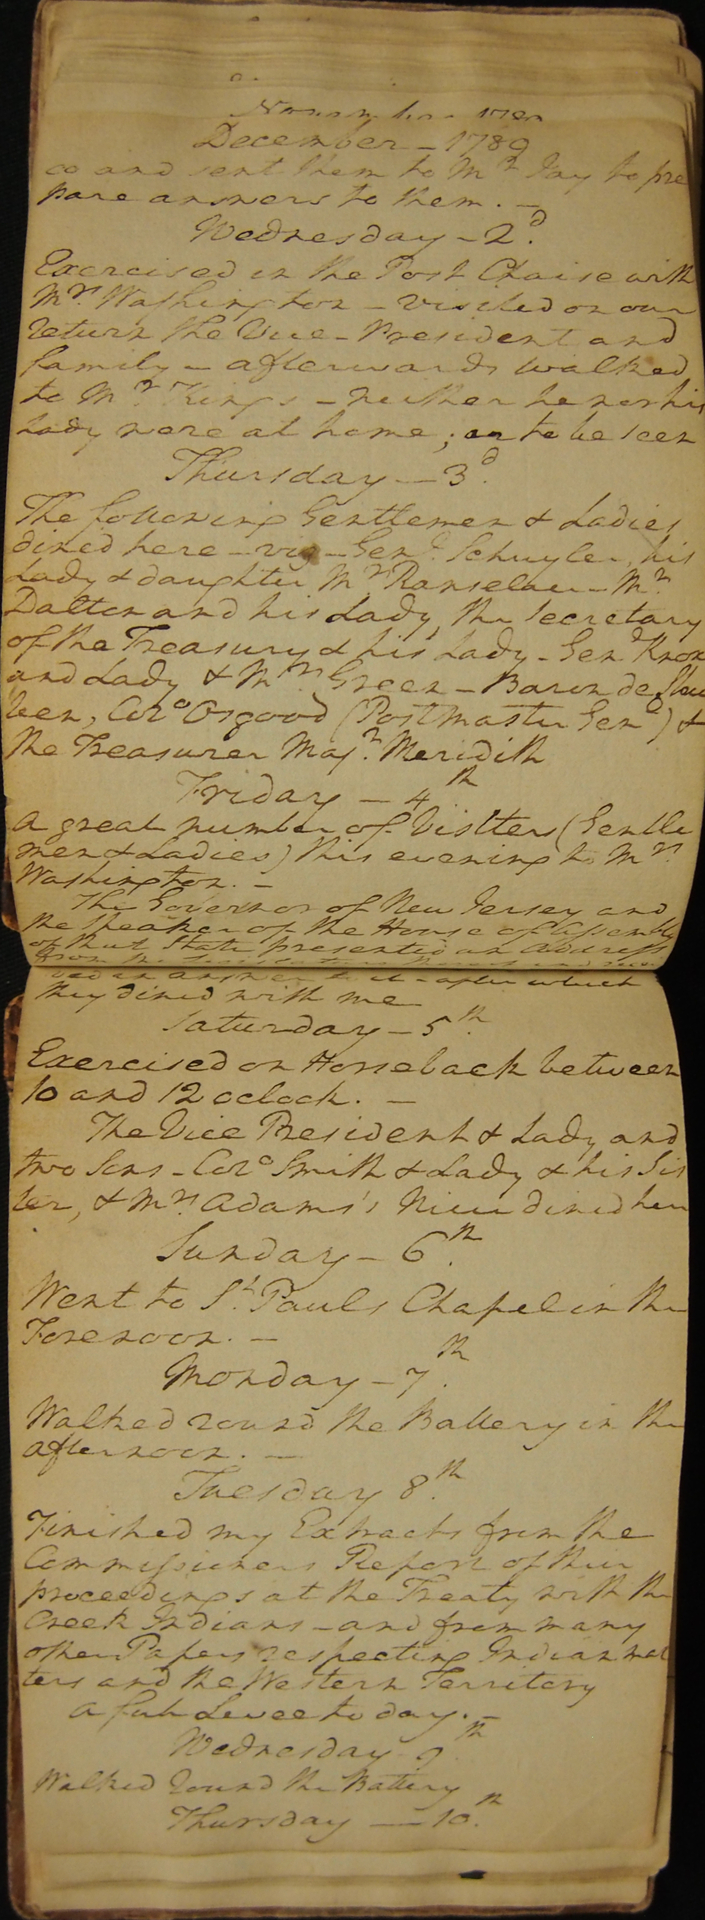 December - 1789
co and sent them to Mr Jay to pre
pare answers to them. -
Wednesday - 2d.
Exercised in the Post Chaise with
Mrs. Washington - visited on our
return the Vice-President and
family - afterwards walked
to Mr Kings - neither he nor his
Lady were at home, or to be seen
Thursday - 3d.
The following Gentlemen & Ladies
dined here - viz - Genl. Schuyler, his
Lady & daughter Mrs Ranselaer - Mr.
Dalton and his Lady, the Secretary
of the Treasury & his Lady - Genl Knox
and Lady & Mrs. Green - Baron de Steu
ben, Colo Osgood (Postmaster Genl) &
the Treasurer Majr. Meridith
Friday - 4th
A great number of Visitters (Gentle
men & Ladies) this evening to Mrs.
Washington. -
The Governor of New Jersey and
the Speaker of the House of Assembly
of that State presented an Address
from the Legislature thereof and recei
ved an answer to it - after which
they dined with me
Saturday - 5th.
Exercised on Horseback between
10 and 12 oclock. -
The Vice President & Lady and
two Sons - Colo Smith & Lady & his Sis
ter, & Mrs. Adams's Niece dined here
Sunday - 6th.
Went to St. Pauls Chapel in the
Forenoon. -
Monday - 7th.
Walked round the Battery in the
afternoon. -
Tuesday 8th.
Finished my Extracts from the
Commissioners Report of their
proceedings at the Treaty with the
Creek Indians - and from many
other Papers respecting Indian mat
ters and the Western Territory
A full Levee to day. -
Wednesday - 9th.
Walked round the Battery
Thursday - 10th.